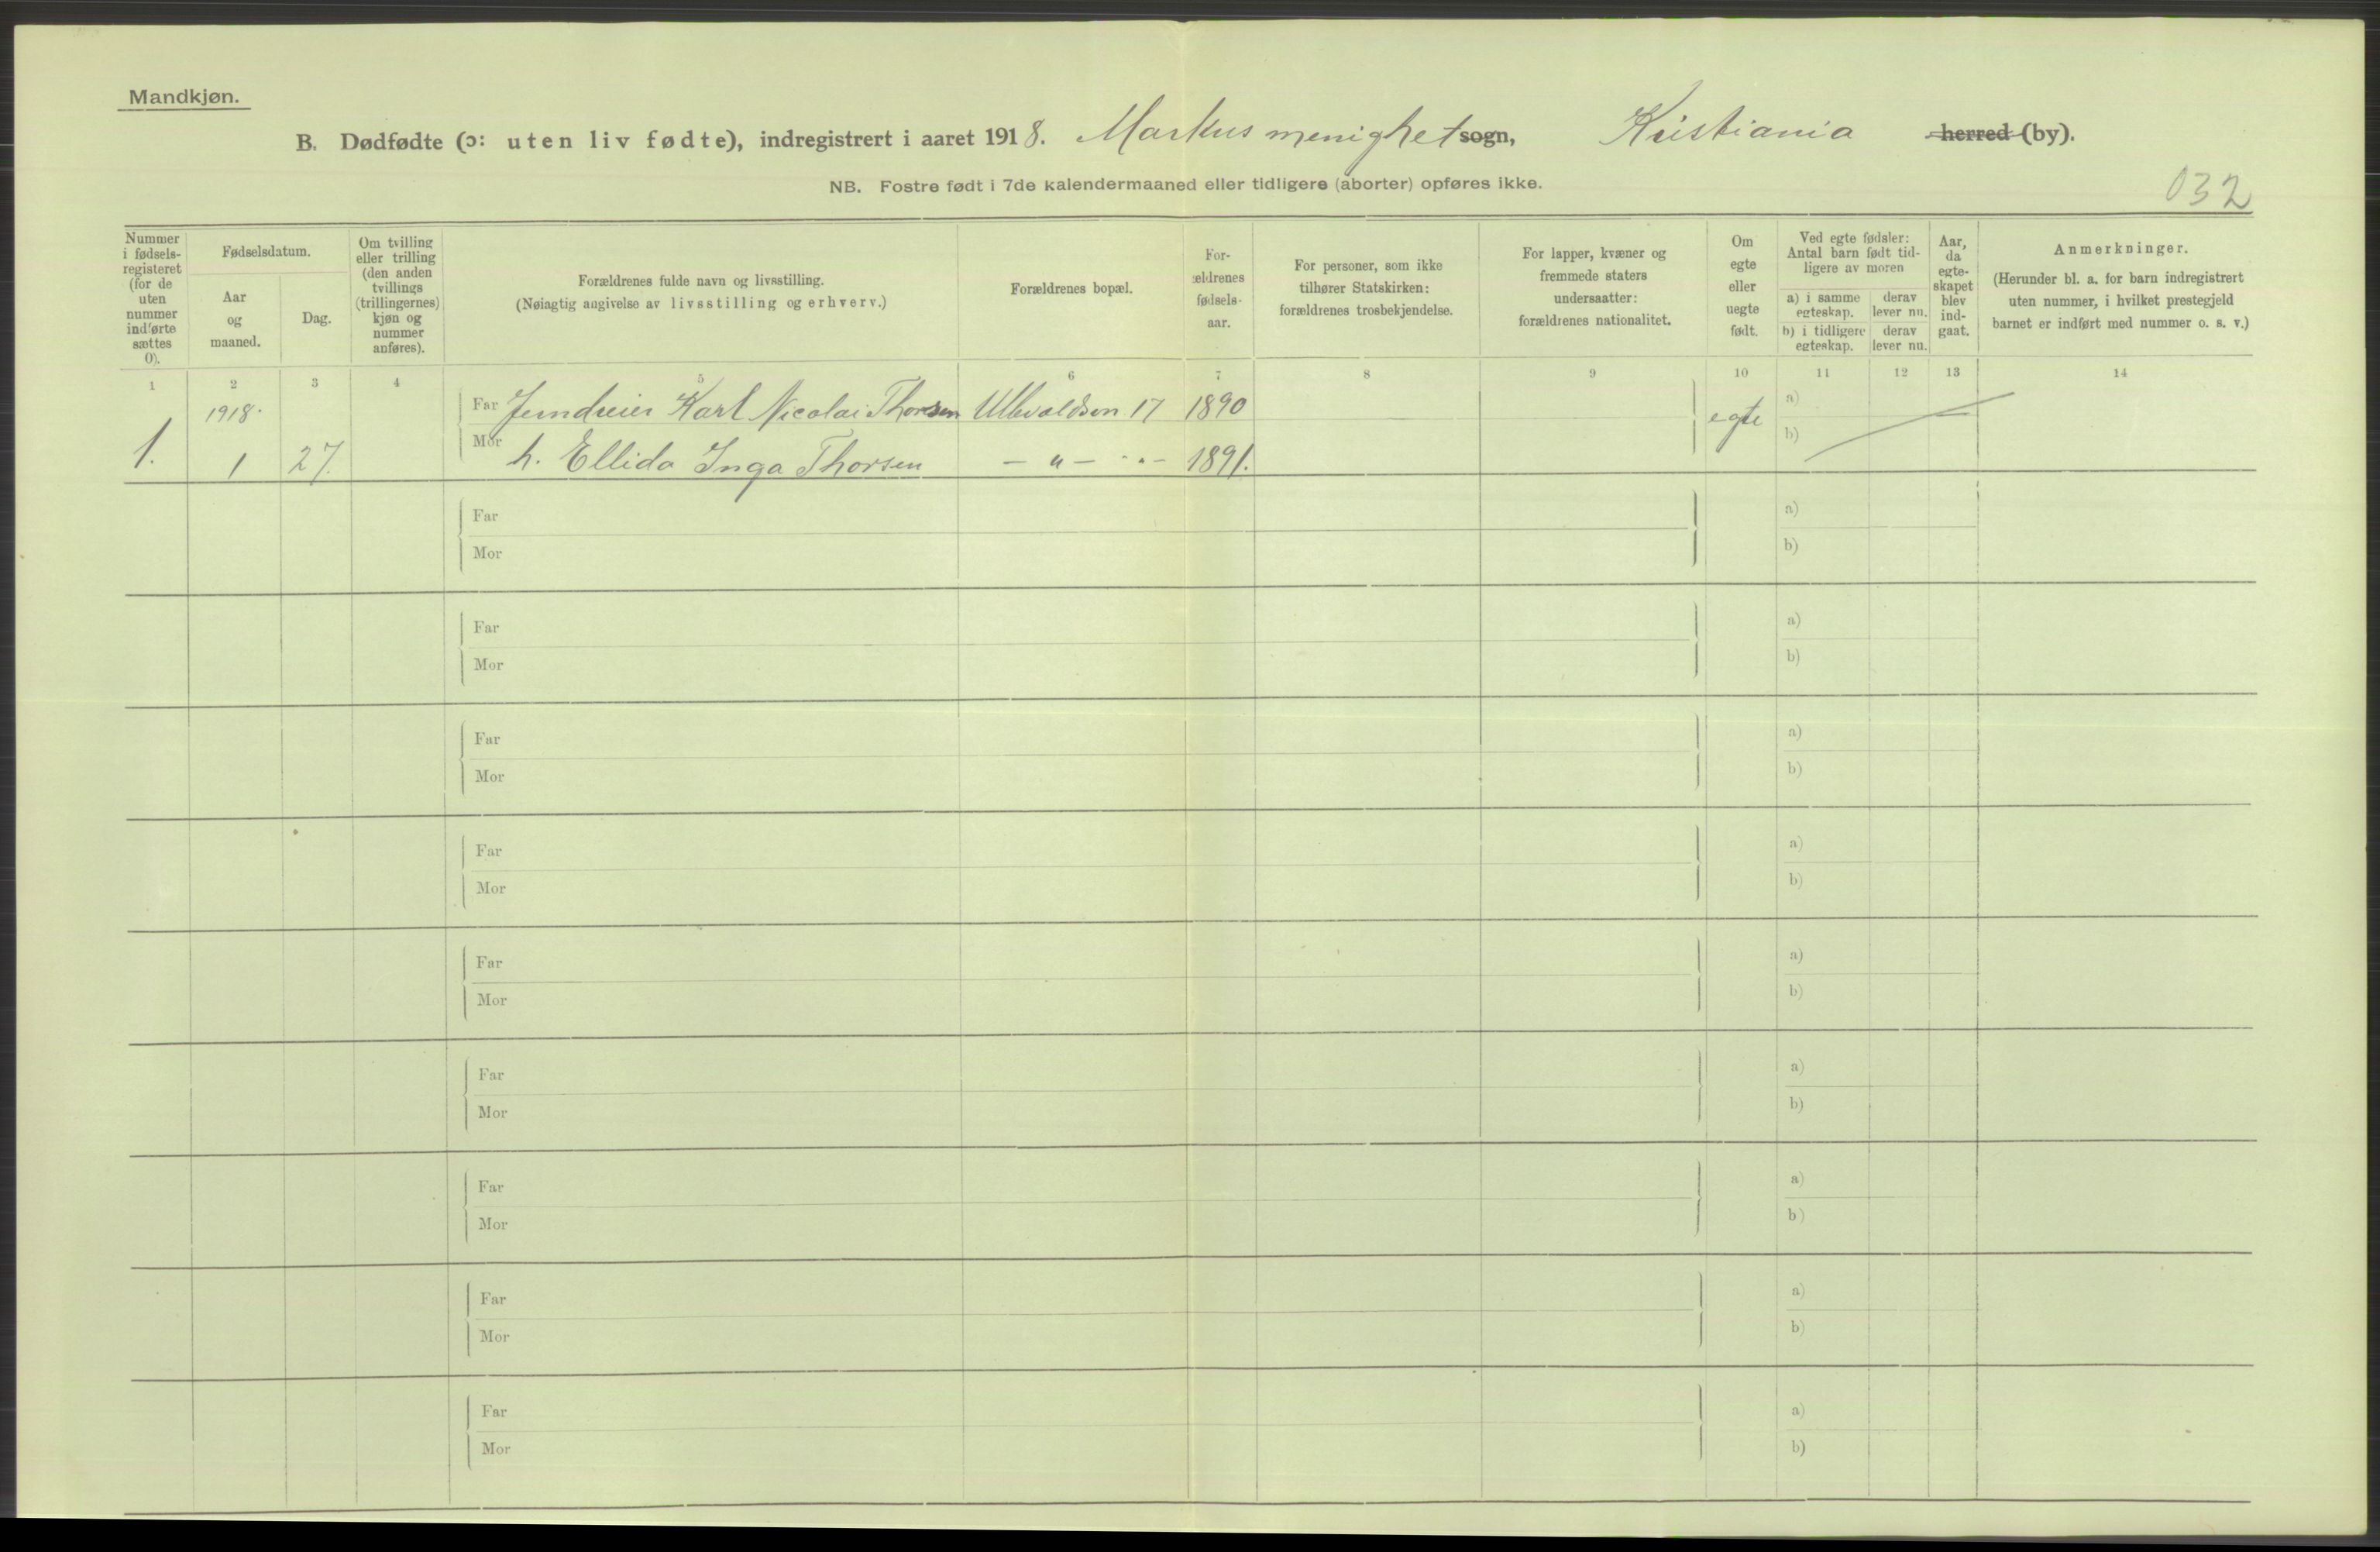 Mandkjøn.
B. Dødfødte (ɔ: uten liv fødte), indregistrert i aaret 1918. Markus menighet sogn, Kristiania herred (by).
NB. Fostre født i 7de kalendermaaned eller tidligere (aborter) opføres ikke.
032
Nummer i fødsels-registeret (for de uten nummer indførte sættes 0).
Fødselsdatum.
Aar og maaned.
Dag.
Om tvilling eller trilling (den anden tvillings (trillingernes) kjøn og nummer anføres).
Forældrenes fulde navn og livsstilling.
(Nøiagtig angivelse av livsstilling og erhverv.)
Forældrenes bopæl.
For-ældrenes fødsels-aar.
For personer, som ikke tilhører Statskirken: forældrenes trosbekjendelse.
For lapper, kvæner og fremmede staters undersaatter: forældrenes nationalitet.
Om egte eller uegte født.
Ved egte fødsler: Antal barn født tid-ligere av moren
a) i samme egteskap.
derav lever nu.
b) i tidligere egteskap.
derav lever nu.
Aar, da egte-skapet blev ind-gaat.
Anmerkninger.
(Herunder bl. a. for barn indregistrert uten nummer, i hvilket prestegjeld barnet er indført med nummer o. s. v.)
1 2 3 4 5 6 7 8 9 10 11 12 13 14
1918.
Far Jerndreier Karl Nicolai Thorsen Ullevoldsvn 17 1890 egte a)
1. 1 27. Mor h. Ellida Inga Thorsen – " – 1891. b)
Far a)
Mor b)
Far a)
Mor b)
Far a)
Mor b)
Far a)
Mor b)
Far a)
Mor b)
Far a)
Mor b)
Far a)
Mor b)
Far a)
Mor b)
Far a)
Mor b)